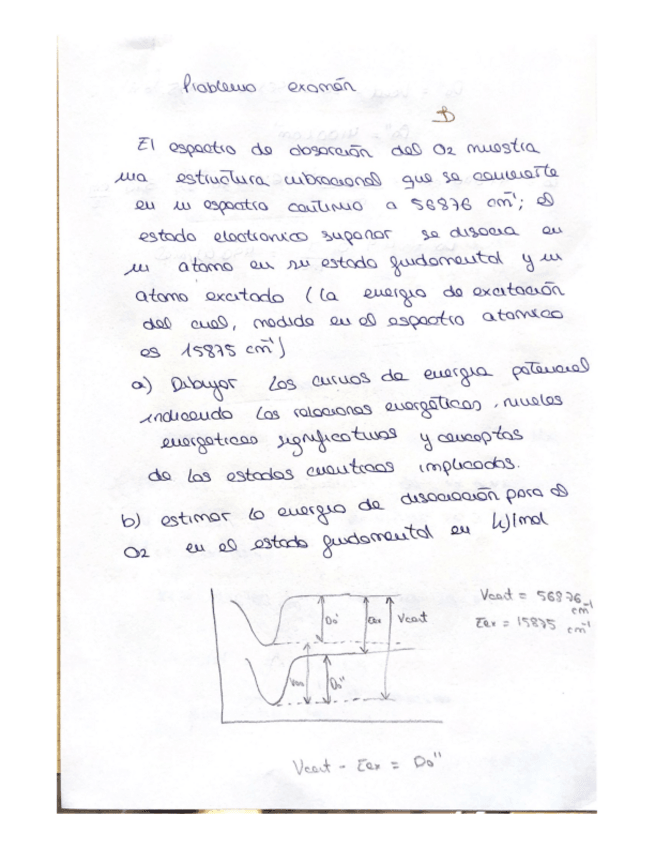 Problema examen
B
El espectro de absorción del O2 muestra
una estructura vibracional que se convierte
en un espectro continuo a 56876 cm⁻¹; el
estado electronico superior se disocia en
un atomo en su estado fundamental y un
atomo excitado (la energia de excitación
del cual, medida en el espectro atomico
es 15875 cm⁻¹)
a) Dibujar las curvas de energia potencial
indicando las relaciones energéticas, niveles
energeticos significativos y conceptos
de los estados cuanticos implicados.
b) estimar la energia de disociación para el
O2 en el estado fundamental en kJ/mol
Vcont = 56876 cm⁻¹
Eex = 15875 cm⁻¹
Do' Eex Vcont
Voo Do''
Vcont - Eex = Do''